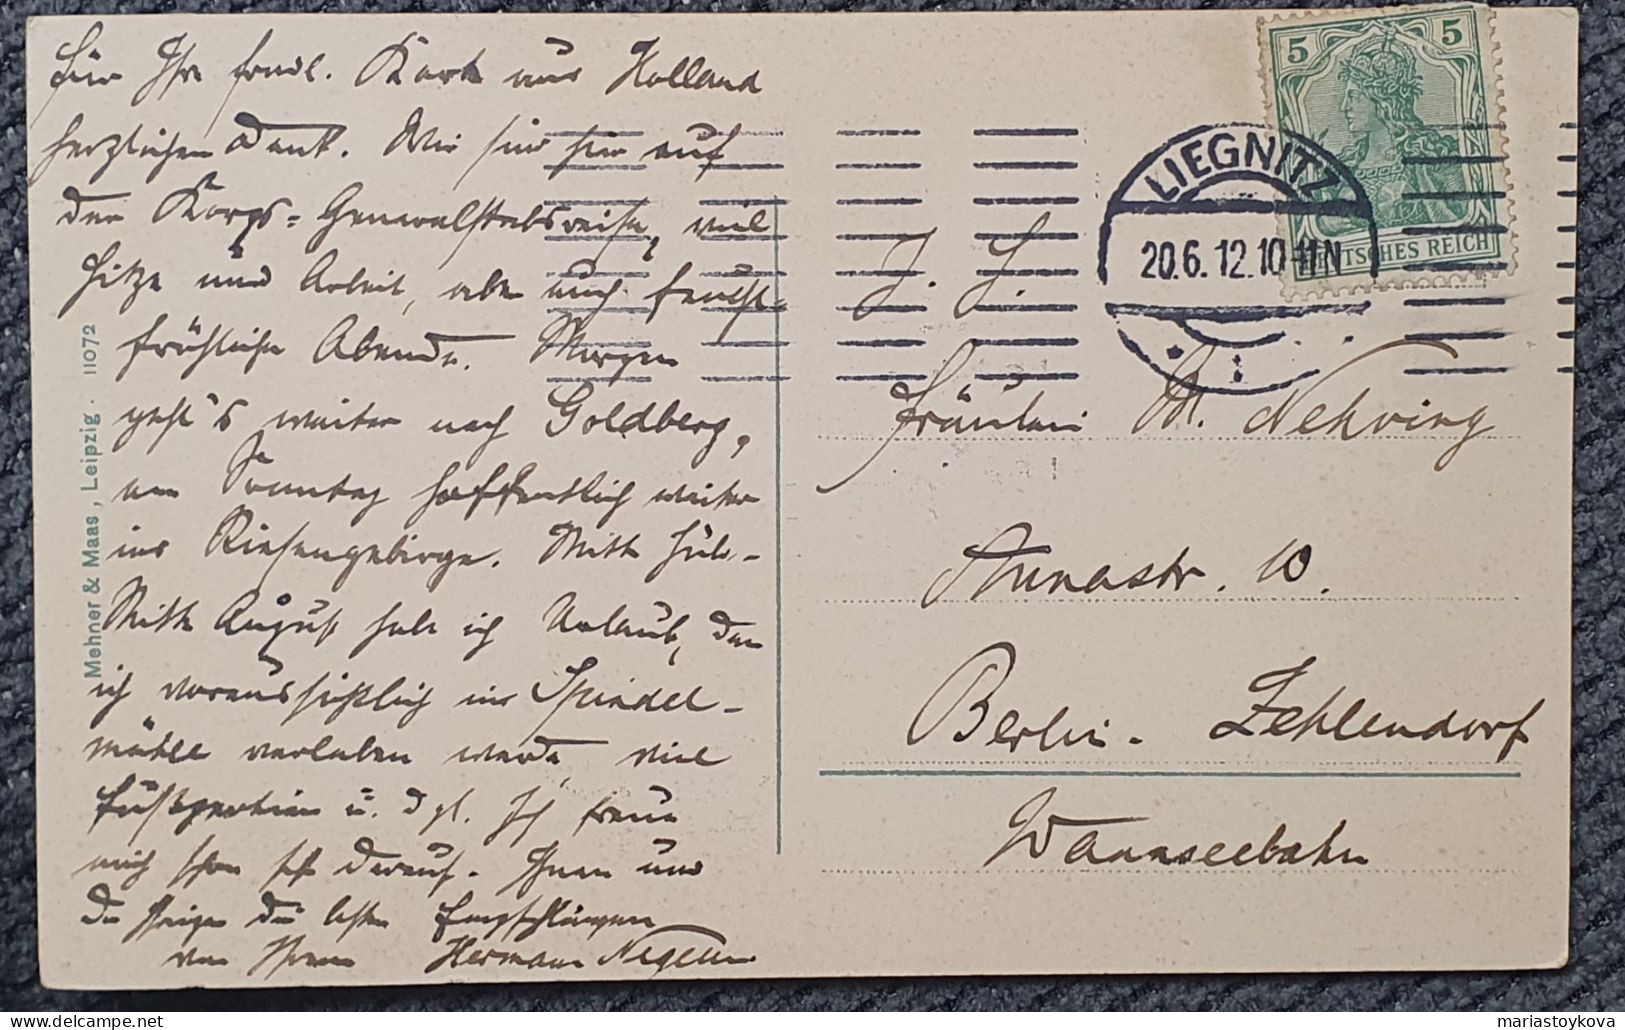 Für Ihre frndl. Karte aus Holland
herzlichen Dank. Wir sind hier auf
der Korps-Generalstabsreise, viel
Hitze und Arbeit, aber auch feucht-
fröhliche Abende. Morgen
geht's weiter nach Goldberg,
am Sonntag hoffentlich weiter
ins Riesengebirge. Mitte Juli-
Mitte August habe ich Urlaub, den
ich voraussichtlich in Spindel-
mühle verleben werde, viel
Fußpartien u. dgl. Ich freue
mich schon sehr darauf. Ihnen und
die besten Empfehlungen
von Ihrem Hermann
Mehner & Maas, Leipzig. 11072
5 5
DEUTSCHES REICH
LIEGNITZ
20.6.12.10-11N
Fräulein M. Nehring
Annastr. 10.
Berlin-Zehlendorf
Wannseebahn
mariastoykova